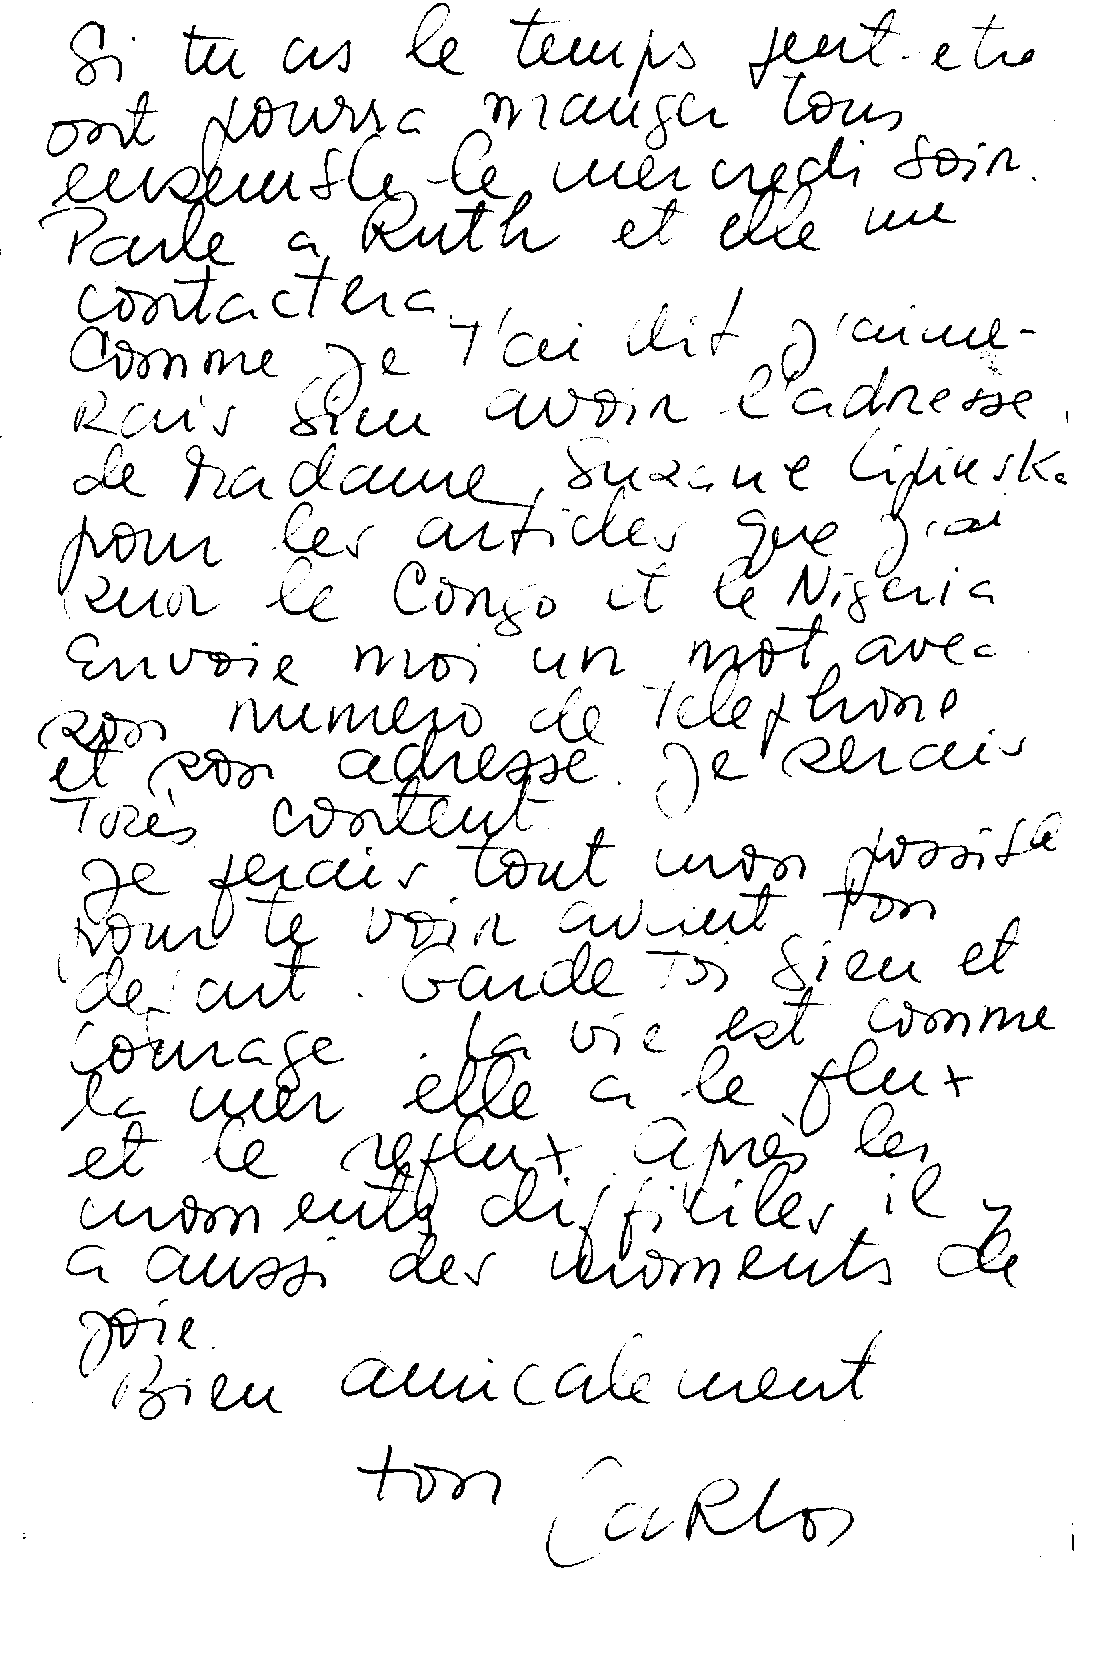 Si tu as le temps peut-etre
ont pourra manger tous
ensemble le mercredi soir.
Parle a Ruth et elle me
contactera.
Comme je t'ai dit j'aime-
Rais bien avoir l'adresse
de Madame Suzane Lipinska
pour les articles que j'ai
sur le Congo et le Nigeria
Envoie moi un mot avec
son numero de Telephone
et son adresse. Je serais
Très content
Je ferais tout mon possible
pour te voir avant ton
depart. Garde Toi bien et
courage. La vie est comme
la mer elle a le flux
et le reflux. Après les
moments difficiles il y
a aussi des moments de
joie.
Bien amicalement
ton Carlos